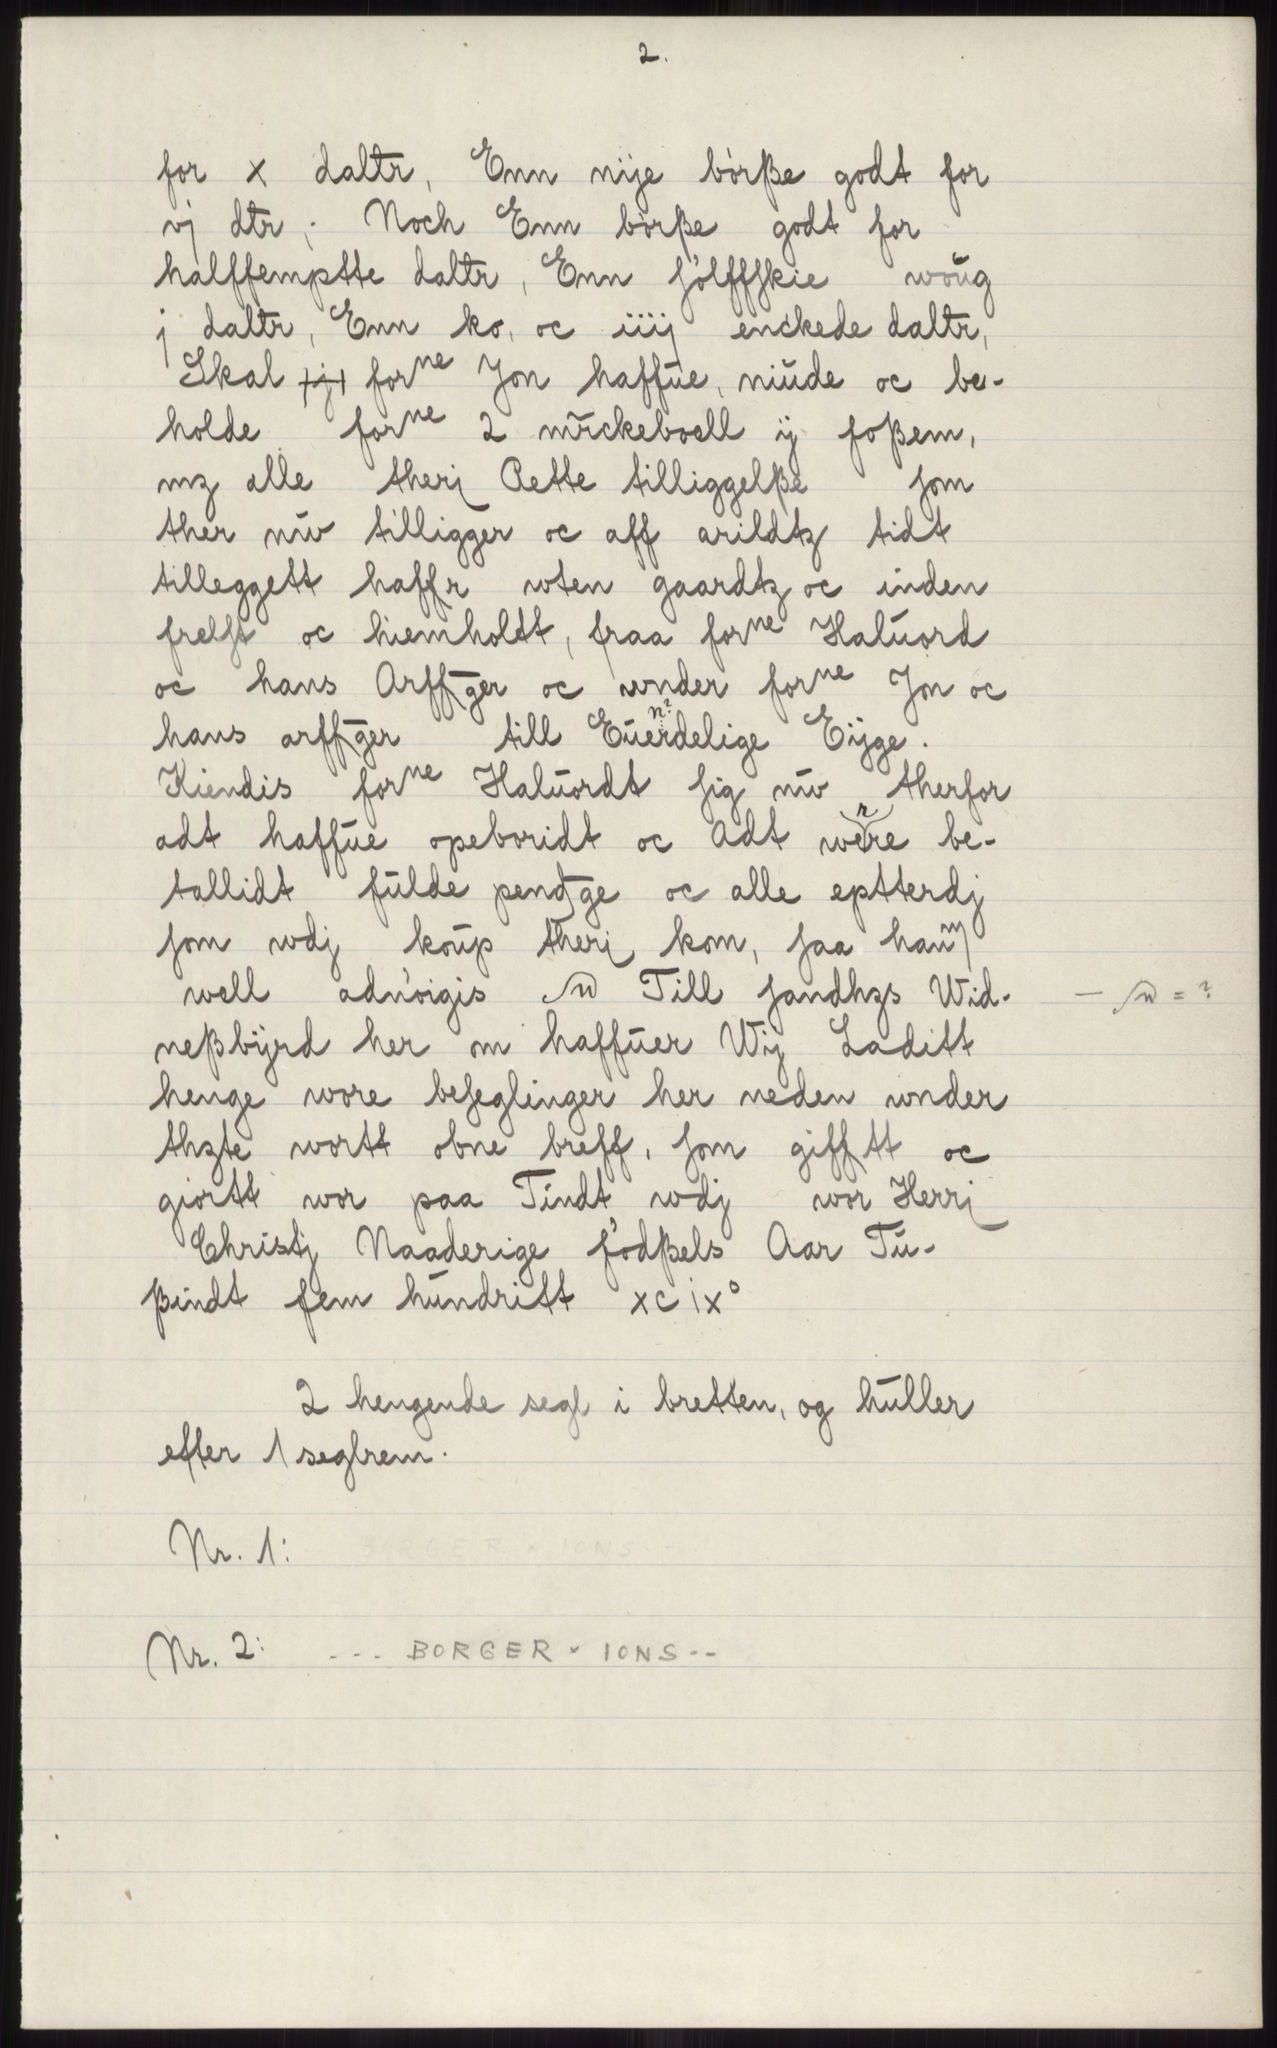 2.
for x daltr, Enn nije börße godt for
vj dtr; Noch Enn börße godt for
halffemptte daltr, Enn sölffskie woŭg
j daltr, Enn ko, oc iiij enckede daltr,
Skal forne Jon haffŭe, niŭde oc be-
holde forne 2 mrckeboell ij foßem,
mz alle therj Rette tilliggelße som
ther nŭ tilligger oc aff arildtz tidt
tilleggett haffr wten gaardtz oc inden
frelst oc hiemholdt, fraa forne Halŭord
oc hans Arffger oc wnder forne Jon oc
hans arffger till Eŭerdelige Eijge.
n?
Kiendis forne Halŭordt sig nŭ therfor
adt haffŭe opeboridt oc Adt were be-
r
tallidt fŭlde pendge oc alle eptterdj
som wdj koŭp therj kom, saa hanm
well adnöigis Till sandhzs Wid- — = ?
neßbÿrd her m haffŭer Wij Laditt
henge wore beseglinger her neden wnder
thzte wortt obne breff, som gifftt oc
giortt wor paa Tindt wdj wor Herrj
Christj Naaderige födßels Aar Tŭ-
ßindt fem hŭndritt xcix°
2 hengende segl i bretten, og hŭller
efter 1 seglrem.
Nr. 1: BORGER × IONS
Nr. 2: --- BORGER × IONS --